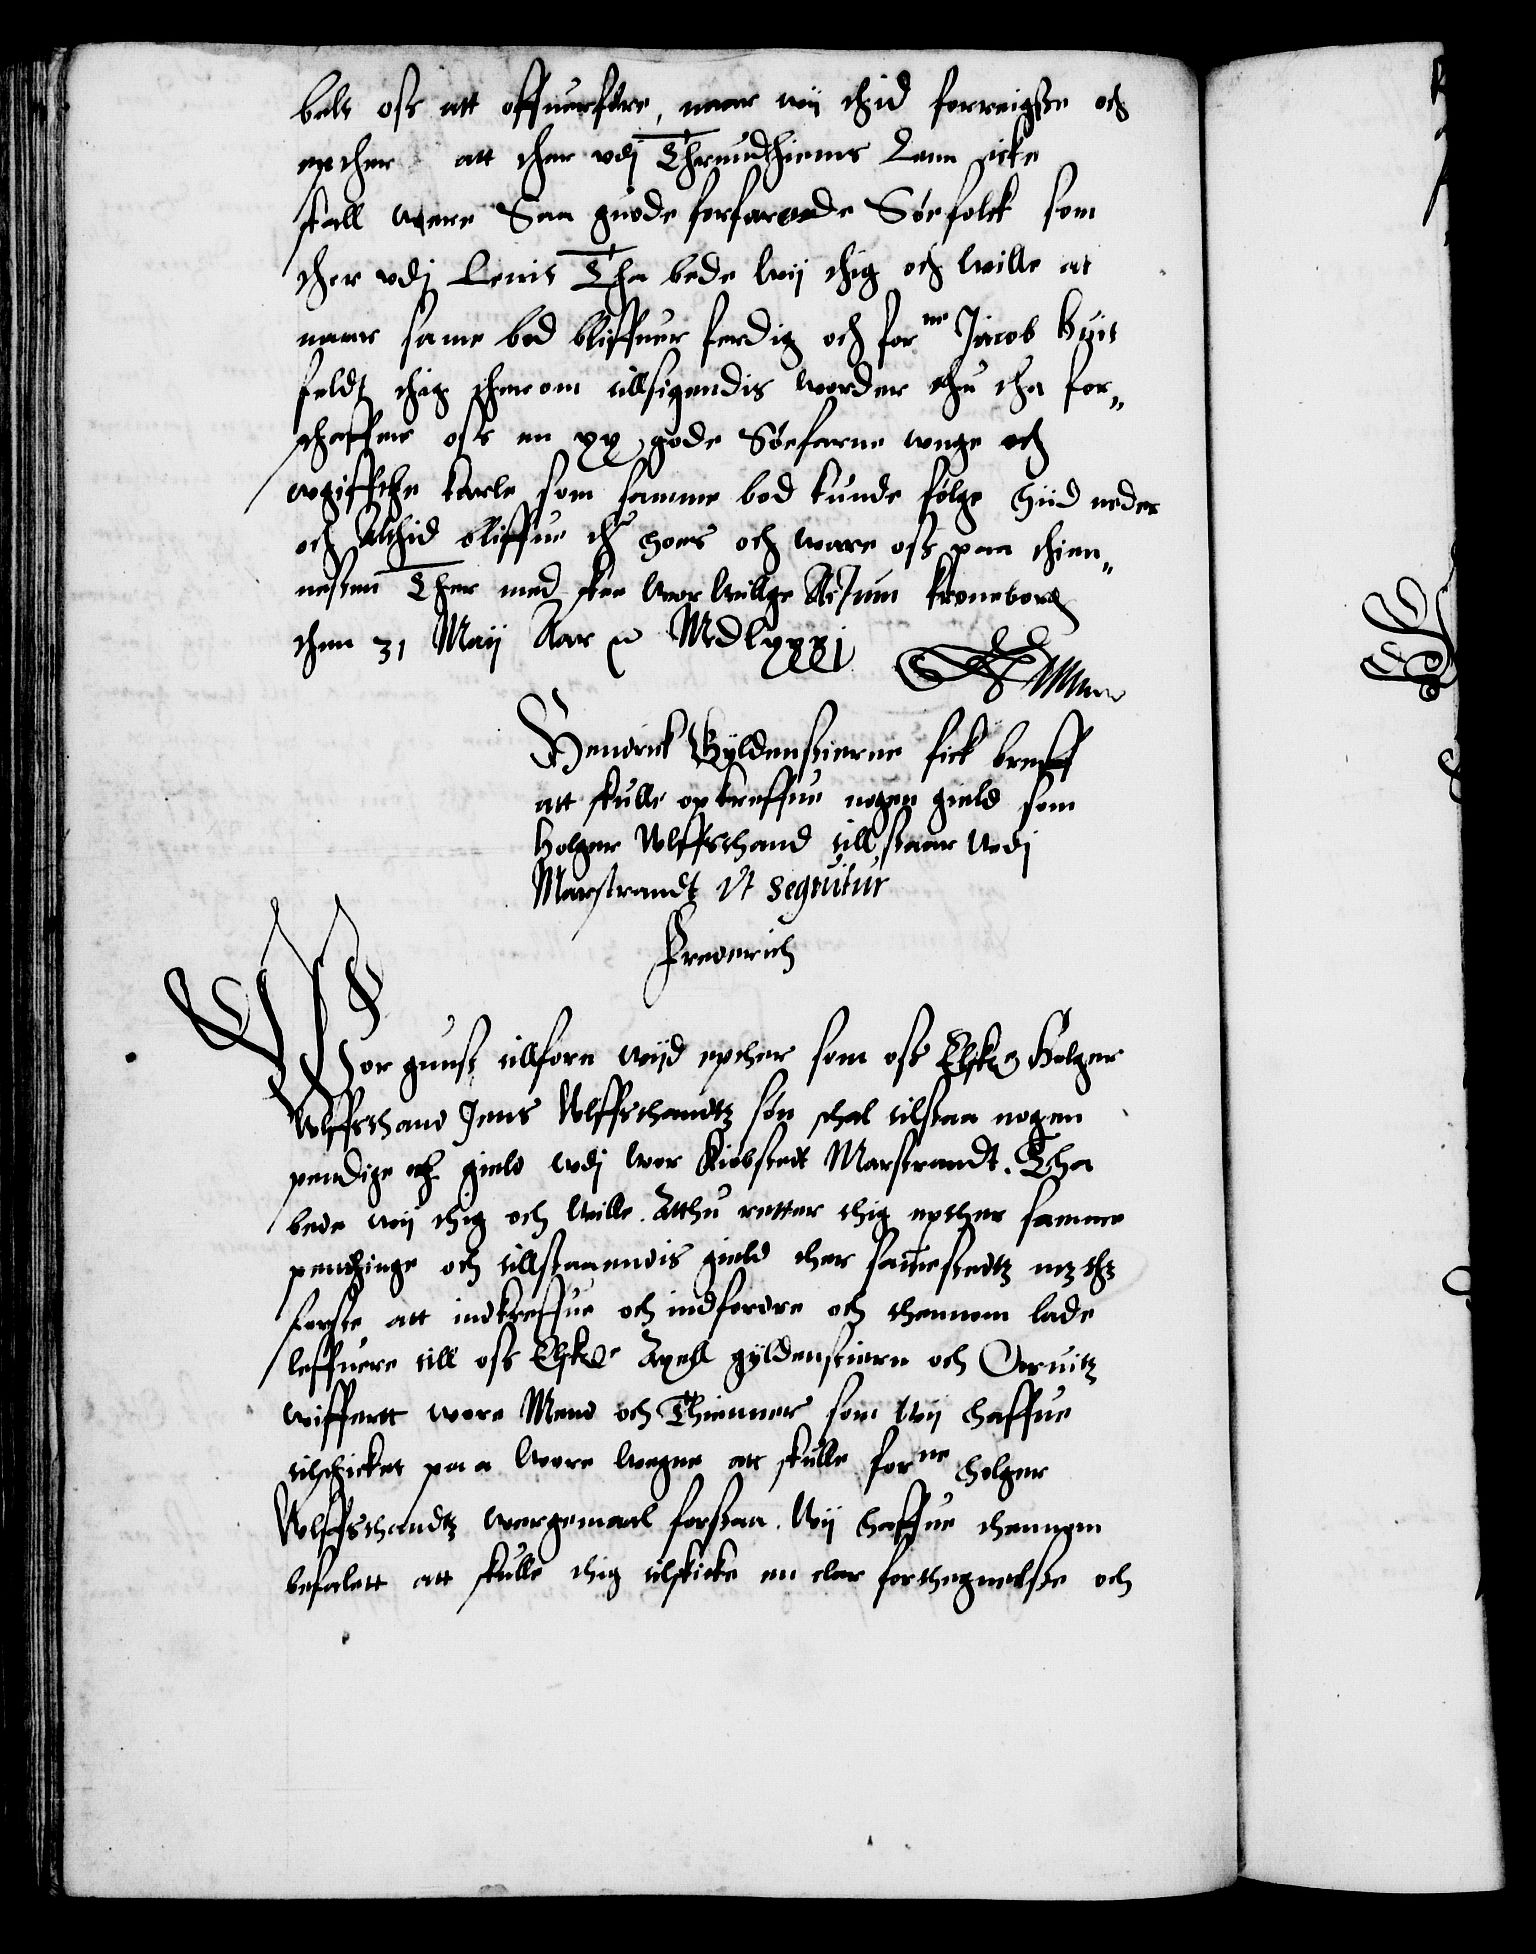 belt oss att offuerføre, naar wij thid forreigsse och
epther att ther vdj Thrundhiems Lenn icke
skall were Saa guode forfarende Søefolck som
ther vdj Lenit Tha bede wij thig och wille at
naar same bod bliffuer ferdig och for^ne Jacob Huit
feldt thig therom tillsigendis worder thu tha for„
schaffer oss en xx gode Søefarne wnge och
wgiffthe karle som samme bod kunde følge hiid neder
och Althid bliffue th^r hoes och ware oss paa thien„
nesten Ther med skee wor willge Actum Kroneborg
then 31 Maij Aar &c Mdlxxxj
Hendrick Gyldenstierne fick breff
att skulle opkreffue nogen gield som
Holger Ulffsthand till staar Vdj
Marstrandt vt segtuitur
Frederich
Wor gunst tillforn wijd epther som oss Elske Holger
Ulffsthand Jens Ulffsthandtz søn schal tilstaa nogen
pendige och gield wdj wor Kiøbstedt Marstrandt. Tha
bede wij thig och wille. Atthu retter thig epther samme
pendginge och tillstaaendis gield ther sammestedtz mz thz
første att indkreffue och indfordre och thennom lade
leffuere till oss Elske Axell gyldenstiern och Oruitz
wiffertt wore Mend och Thienner som wij haffue
tilschicket paa wore wegne att skulle for^ne holger
Ulffsthandtz wergemaal forstaa. Wij haffue thennom
befalett att skulle thig tilskicke en clar forthegnelsse och